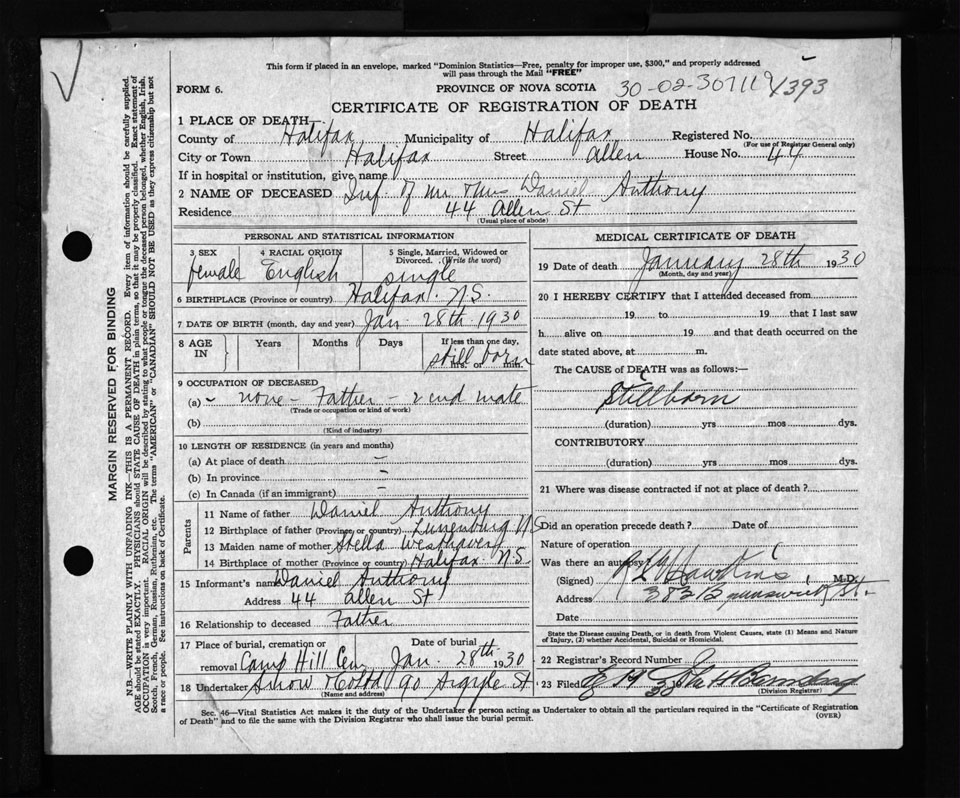 This form if placed in an envelope, marked "Dominion Statistics—Free, penalty for improper use, $300," and properly addressed
will pass through the Mail "FREE"
FORM 6.
PROVINCE OF NOVA SCOTIA
30-02-307119
1393
CERTIFICATE OF REGISTRATION OF DEATH
1 PLACE OF DEATH
County of Halifax Municipality of Halifax Registered No.
(For use of Registrar General only)
City or Town Halifax Street Allen House No. 44
If in hospital or institution, give name
2 NAME OF DECEASED Inf of Mr Mrs Daniel Anthony
Residence 44 Allen St
(Usual place of abode)
PERSONAL AND STATISTICAL INFORMATION
3 SEX female 4 RACIAL ORIGIN English 5 Single, Married, Widowed or Divorced. (Write the word) single
6 BIRTHPLACE (Province or country) Halifax N.S.
7 DATE OF BIRTH (month, day and year) Jan. 28th 1930
8 AGE IN Years Months Days If less than one day, hrs. or min. still born
9 OCCUPATION OF DECEASED
(a) none - Father - 2end mate
(Trade or occupation or kind of work)
(b)
(Kind of industry)
10 LENGTH OF RESIDENCE (in years and months)
(a) At place of death –
(b) In province –
(c) In Canada (if an immigrant) –
Parents
11 Name of father Daniel Anthony
12 Birthplace of father (Province or country) Lunenburg N S
13 Maiden name of mother Stella Westhaver
14 Birthplace of mother (Province or country) Halifax N.S.
15 Informant's name Daniel Anthony
Address 44 Allen St
16 Relationship to deceased Father
17 Place of burial, cremation or removal Camp Hill Cem Date of burial Jan. 28th 1930
18 Undertaker Snow 90 Argyle St
(Name and address)
MEDICAL CERTIFICATE OF DEATH
19 Date of death January 28th 1930
(Month, day and year)
20 I HEREBY CERTIFY that I attended deceased from
19 to 19 that I last saw
h alive on 19 and that death occurred on
date stated above, at m.
The CAUSE of DEATH was as follows:—
Stillborn
(duration) yrs mos dys.
CONTRIBUTORY
(duration) yrs mos dys.
21 Where was disease contracted if not at place of death?
Did an operation precede death? Date of
Nature of operation
Was there an autopsy
(Signed) Hawkins M.D.
Address 383 Brunswick St.
Date
State the Disease causing Death, or in death from Violent Causes, state (1) Means and Nature
of Injury, (2) whether Accidental, Suicidal or Homicidal.
22 Registrar's Record Number
23 Filed
(Division Registrar)
Sec. 46—Vital Statistics Act makes it the duty of the Undertaker or person acting as Undertaker to obtain all the particulars required in the "Certificate of Registration
of Death" and to file the same with the Division Registrar who shall issue the burial permit.
(OVER)
MARGIN RESERVED FOR BINDING
N.B.—WRITE PLAINLY WITH UNFADING INK—THIS IS A PERMANENT RECORD. Every item of information should be carefully supplied.
AGE should be stated EXACTLY. PHYSICIANS should STATE CAUSE OF DEATH in plain terms, so that it may be properly classified. Exact statement of
OCCUPATION is very important. RACIAL ORIGIN will be described by stating to what people or tongue the deceased person belonged, whether English, Irish,
Scotch, French, German, Russian, Ruthenian, etc. The terms "AMERICAN" or "CANADIAN" SHOULD NOT BE USED as they express citizenship but not
a race or people. See instructions on back of Certificate.